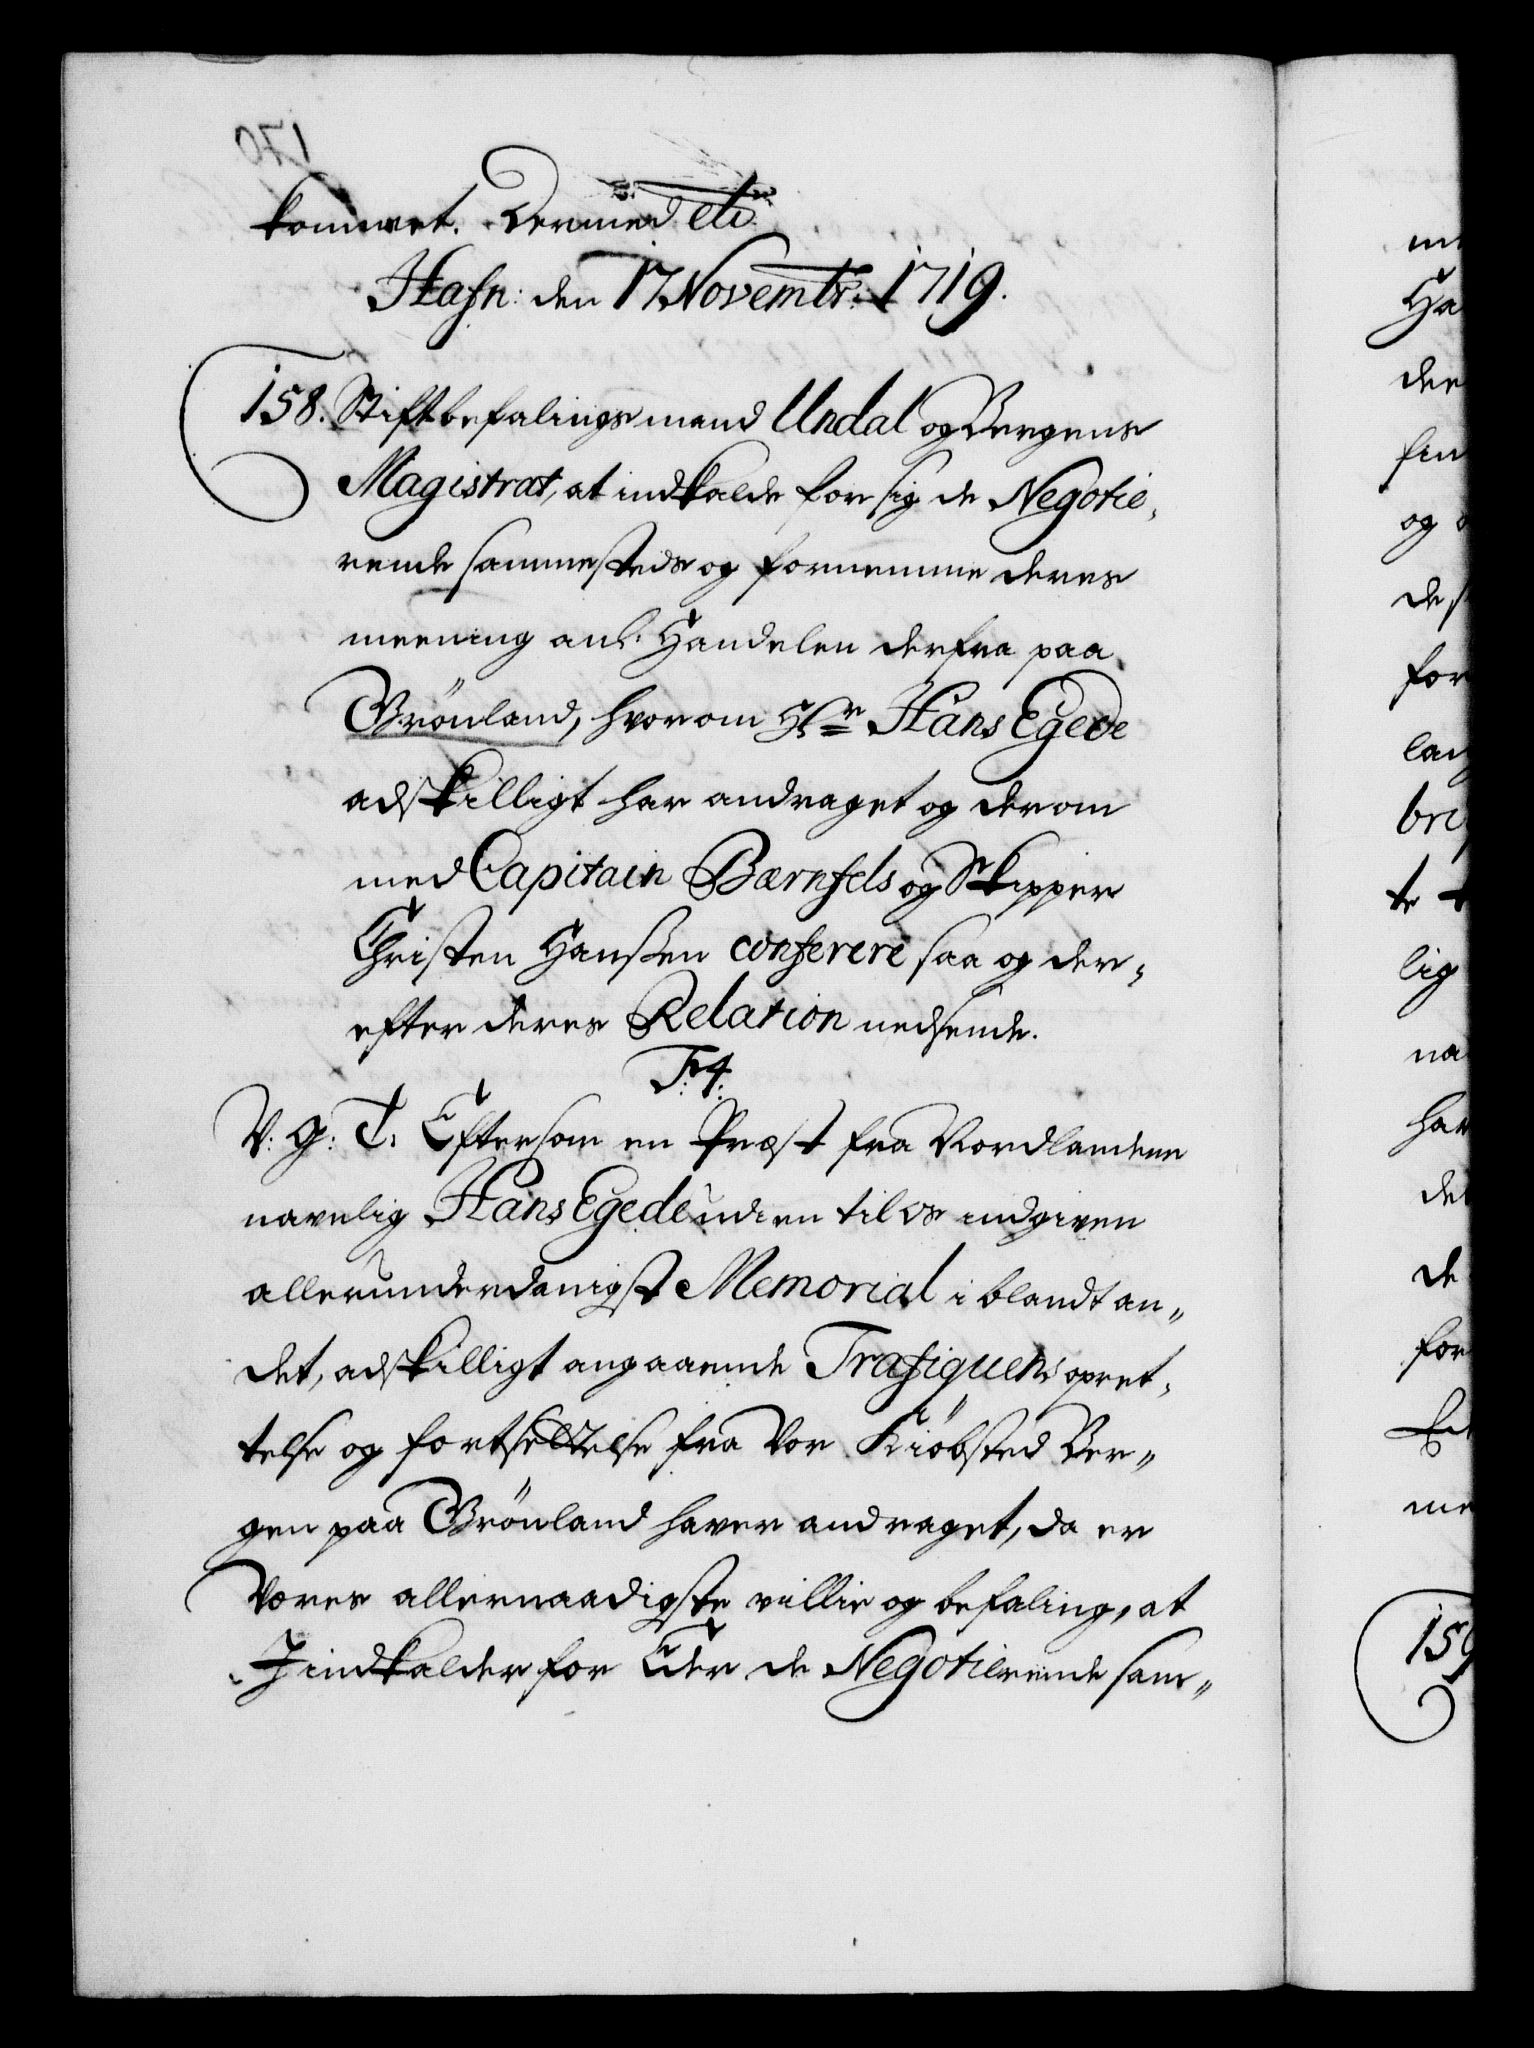 kommet. Dermed etc.
Hafn: den 17 Novembr: 1719.
158. Stiftbefalingsmand Undal og Bergens
Magistrat, at indkalde for sig de Negotie,
rende sammesteds og fornemme deres
meening anl. Handelen derfra paa
Grönland, hvorom Hr Hans Egede
adskilligt har andraget og derom
med Capitain Bærnfels og Skipper
Christen Hanßen conferere saa og der,
efter deres Relation nedsende.
F: 4:
V: G: T: Eftersom en Præst fra Nordlandene
navnlig Hans Egede udi en til os indgiven
allerunderdanigst Memorial i blandt an„
det, adskilligt angaaende Trafiquens opret,
telse og fortsettelse fra Vor Kiöbsted Ber„
gen paa Grönland haver andraget, da er
Vores allernaadigste villie og befaling, at
I indkalder for Eder de Negotierende sam„